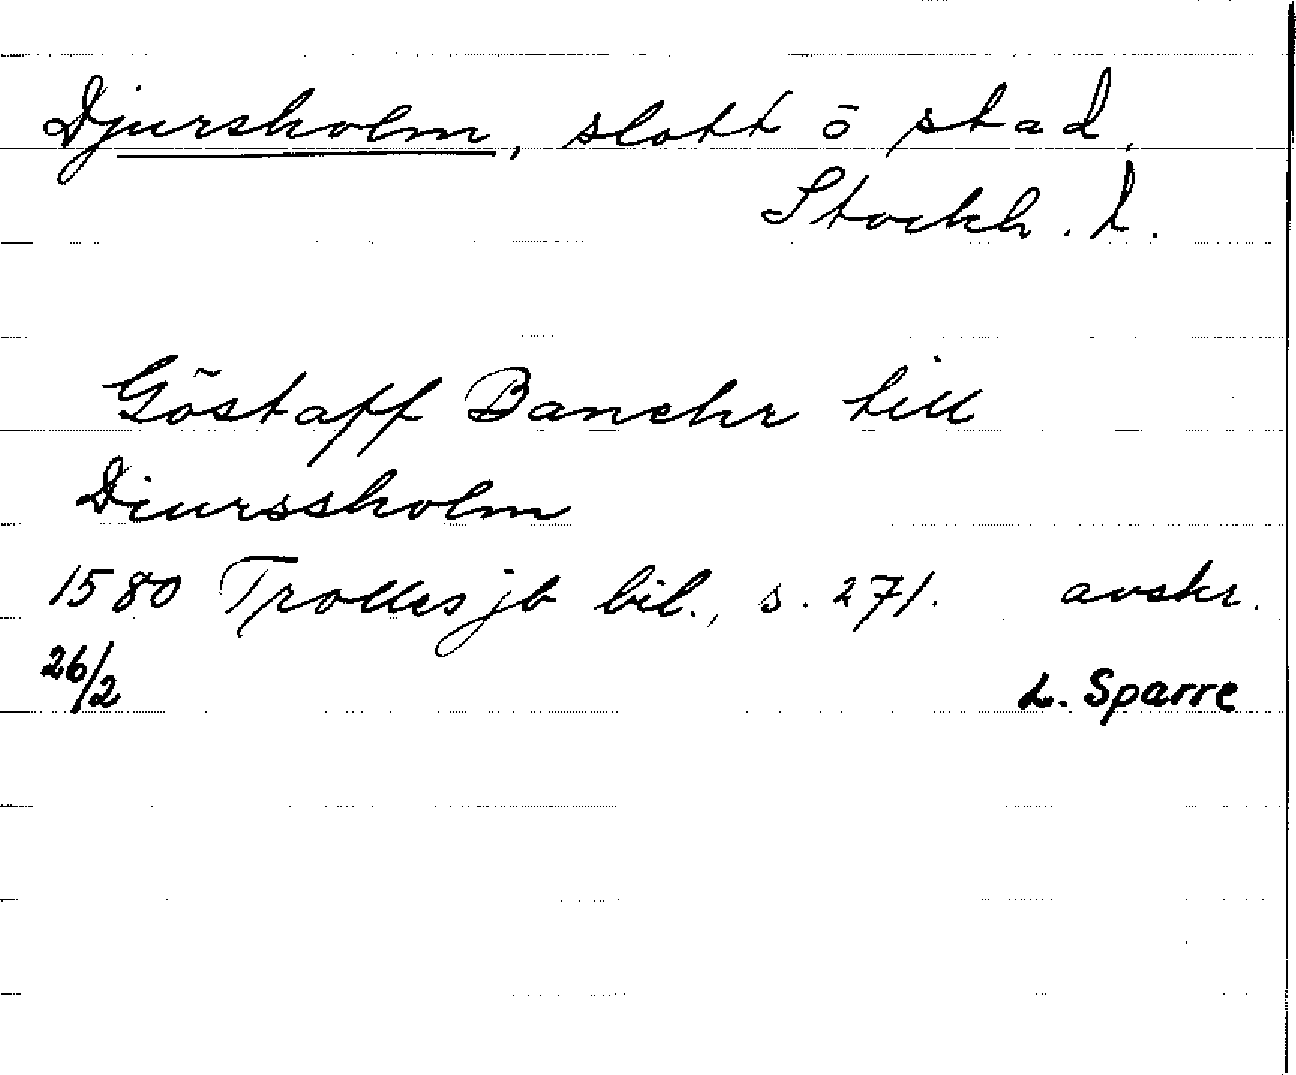 Djursholm, slott ō stad,
Stockh. L.
Göstaff Banehr till
Diurssholm
1580 Trolles jb bil., s. 271. avskr.
26/2 L. Sparre